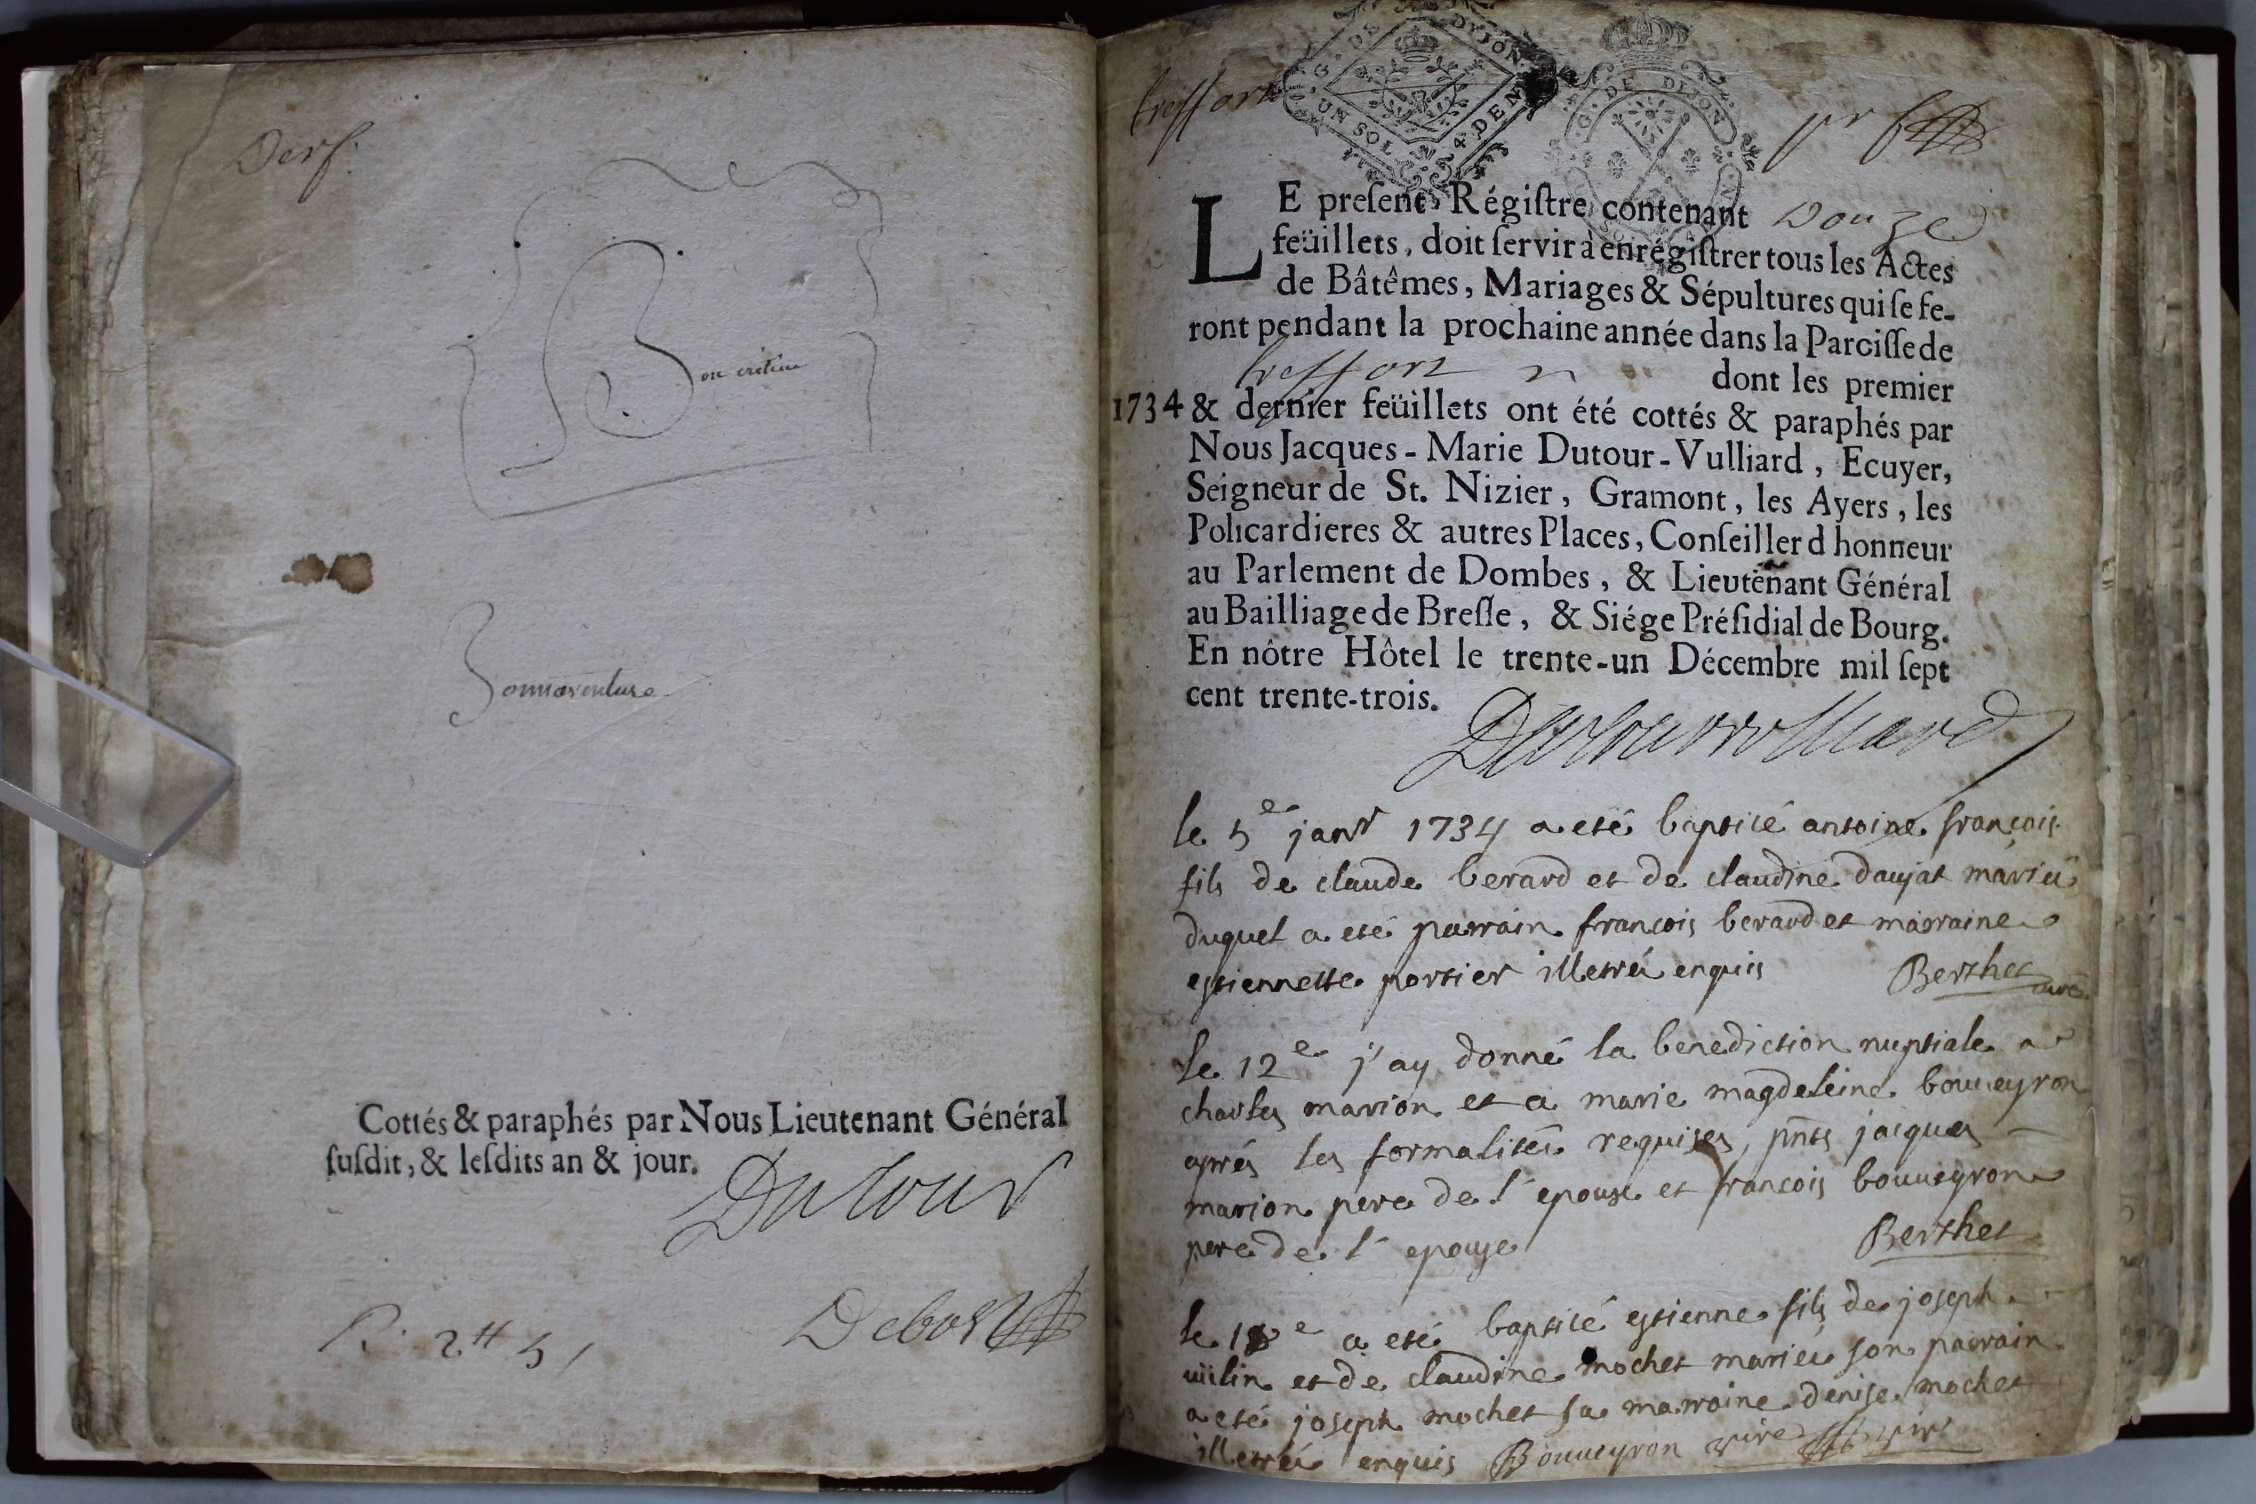 Derf.
Bon
Bonnaventure
Cottés & paraphés par Nous Lieutenant Général
ſuſdit, & leſdits an & jour.
Dutour
Debost
R. 2tt 5 ſ
treffort
G. DE DYJON.
UN SOL 4 DEN
G. DE DIJON
pr f
LE preſent Régiſtre contenant Douze
feüillets, doit ſervir à enrégiſtrer tous les Actes
de Bâtêmes, Mariages & Sépultures qui ſe fe-
ront pendant la prochaine année dans la Paroiſſe de
treffort dont les premier
1734 & dernier feüillets ont été cottés & paraphés par
Nous Jacques-Marie Dutour-Vulliard, Ecuyer,
Seigneur de St. Nizier, Gramont, les Ayers, les
Policardieres & autres Places, Conſeiller d honneur
au Parlement de Dombes, & Lieutenant Général
au Bailliage de Breſſe, & Siége Préſidial de Bourg.
En nôtre Hôtel le trente-un Décembre mil ſept
cent trente-trois.
Dutourvulliard
le 5e janr 1734 a eté baptisé antoine françois
fils de claude berard et de claudine daujat mariés
duquel a eté parrain françois berard et marraine
estiennette portier illetrés enquis Berthet curé
le 12e j'ay donné la benediction nuptiale a
charles marion et a marie magdeleine bouveyron
aprés les formalités requises, pnts jacques
marion pere de l'epoux et françois bouveyron
pere de l'epouse Berthet
le 18e a eté baptisé estienne fils de joseph
vilin et de claudine mochet mariés son parrain
a eté joseph mochet sa marraine denise mochet
illetrés enquis Bouveyron vire